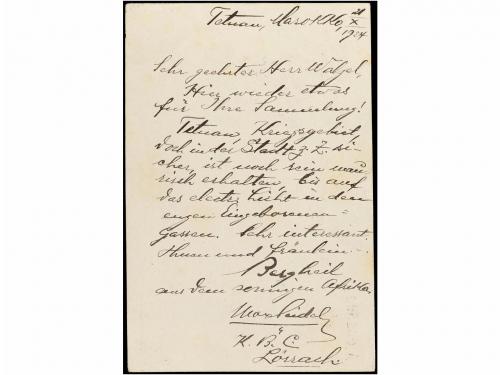 Tetuan, Marokko, 21/X 1924
Sehr geehrter Herr Walzel,
Hier wieder etwas
für Ihre Sammlung!
Tetuan, Kriegsgebiet,
doch in der Stadt z. Z. si-
cher, ist noch rein mau-
risch erhalten, bis auf
das electr. Licht in den
engen Eingeborenen-
gassen. Sehr interessant.
Ihnen und Fräulein
Bergheil
aus dem sonnigen Afrika.
Max Seidel
K. B. C.
Lörrach.